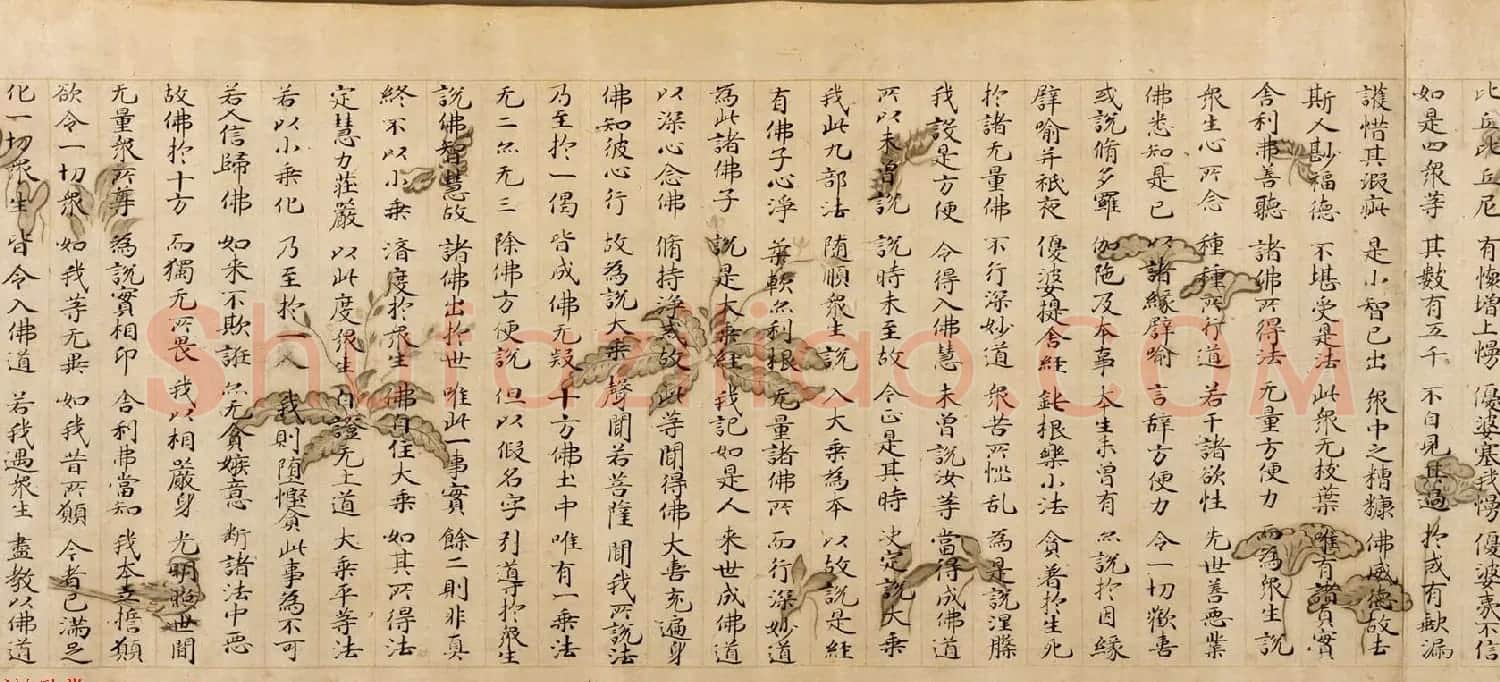 比丘比丘尼 有懷增上慢 優婆塞我慢 優婆夷不信
如是四眾等 其數有五千 不自見其過 於戒有缺漏
護惜其瑕疵 是小智已出 眾中之糟糠 佛威德故去
斯人尠福德 不堪受是法 此眾无枝葉 唯有諸貞實
舍利弗善聽 諸佛所得法 无量方便力 而為眾生說
眾生心所念 種種所行道 若干諸欲性 先世善惡業
佛悉知是已 以諸緣譬喻 言辭方便力 令一切歡喜
或說脩多羅 伽陁及本事 本生未曾有 亦說於因緣
譬喻并祇夜 優婆提舍經 鈍根樂小法 貪著於生死
於諸无量佛 不行深妙道 眾苦所惱乱 為是說涅槃
我設是方便 令得入佛慧 未曾說汝等 當得成佛道
所以未曾說 說時未至故 今正是其時 決定說大乘
我此九部法 隨順眾生說 入大乘為本 以故說是經
有佛子心淨 柔軟亦利根 无量諸佛所 而行深妙道
為此諸佛子 說是大乘經 我記如是人 來世成佛道
以深心念佛 脩持淨戒故 此等聞得佛 大喜充遍身
佛知彼心行 故為說大乘 聲聞若菩薩 聞我所說法
乃至於一偈 皆成佛无疑 十方佛土中 唯有一乘法
无二亦无三 除佛方便說 但以假名字 引導於眾生
說佛智慧故 諸佛出於世 唯此一事實 餘二則非真
終不以小乘 濟度於眾生 佛自住大乘 如其所得法
定慧力莊嚴 以此度眾生 自證无上道 大乘平等法
若以小乘化 乃至於一人 我則墮慳貪 此事為不可
若人信歸佛 如來不欺誑 亦无貪嫉意 斷諸法中惡
故佛於十方 而獨无所畏 我以相嚴身 光明照世間
无量眾所尊 為說實相印 舍利弗當知 我本立誓願
欲令一切眾 如我等无異 如我昔所願 今者已滿足
化一切眾生 皆令入佛道 若我遇眾生 盡教以佛道
Shufaziliao.COM